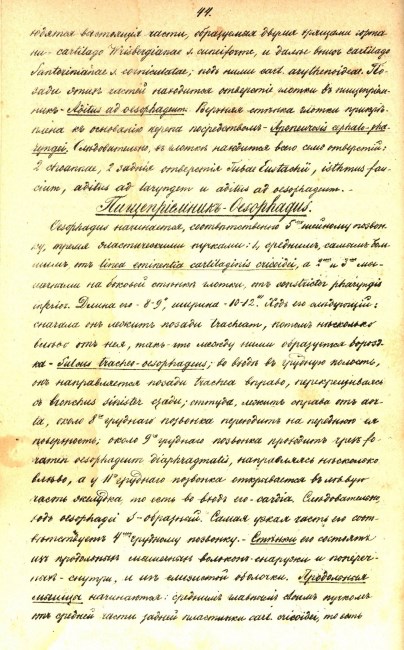 44.
ходятся выстоящія части, образуемыя двумя хрящами горта-
ни - cartilago Wrisbergianae s. cuneiforme, и далѣе внизъ cartilago
Santorinianae s. corniculatae; подъ ними cart. arythenoideae. По-
зади этихъ частей находится отверстіе глотки въ пищепріем-
никъ - Aditus ad oesophagum. Верхняя стѣнка глотки прикрѣ-
плена къ основанію черепа посредствомъ - Aponeurosis cephalo-pha-
ryngei. Слѣдовательно, въ глоткѣ находится всего семь отверстій:
2 choanae, 2 заднія отверстія Tubae Eustachii, isthmus fau-
cium, aditus ad laryngem и aditus ad oesophagum. -
Пищепріемникъ - Oesophagus.
Oesophagus начинается, соотвѣтственно 5му шейному позвон-
ку, тремя эластическими пучками: 1, среднимъ, самымъ боль-
шимъ отъ linea eminentia cartilaginis cricoidei, а 2мя и 3мя мы-
шечками на боковой стѣнкѣ глотки, отъ constrictor pharyngis
inferior. Длина его - 8-9", ширина - 10-12'''. Ходъ его слѣдующій:
сначала онъ лежитъ позади tracheam, потомъ нѣсколько
влѣво отъ нея, такъ-что между ними образуется борозд-
ка - Sulcus tracheo-oesophageus; во входѣ въ грудную полость,
онъ направляется позади trachea вправо, перекрещиваясь
съ bronchus sinister сзади; оттуда, лежитъ справа отъ aor-
ta, около 8го груднаго позвонка переходитъ на переднюю ея
поверхность; около 9го груднаго позвонка проходитъ чрезъ fo-
ramen oesophageum diaphragmatis, направляясь нѣсколько
влѣво, а у 11го груднаго позвонка открывается въ лѣвую
часть желудка, то есть во входъ его - cardia. Слѣдовательно,
ходъ oesophagei S-образный. Самая узкая часть его соот-
вѣтствуетъ 4му грудному позвонку. - Стѣнки его состоятъ
изъ продольныхъ мышечныхъ волоконъ - снаружи и попереч-
ныхъ - снутри, и изъ слизистой оболочки. Продольныя
мышцы начинаются: среднимъ главнымъ своимъ пучкомъ
отъ средней части задней пластинки cart. cricoidei, то есть